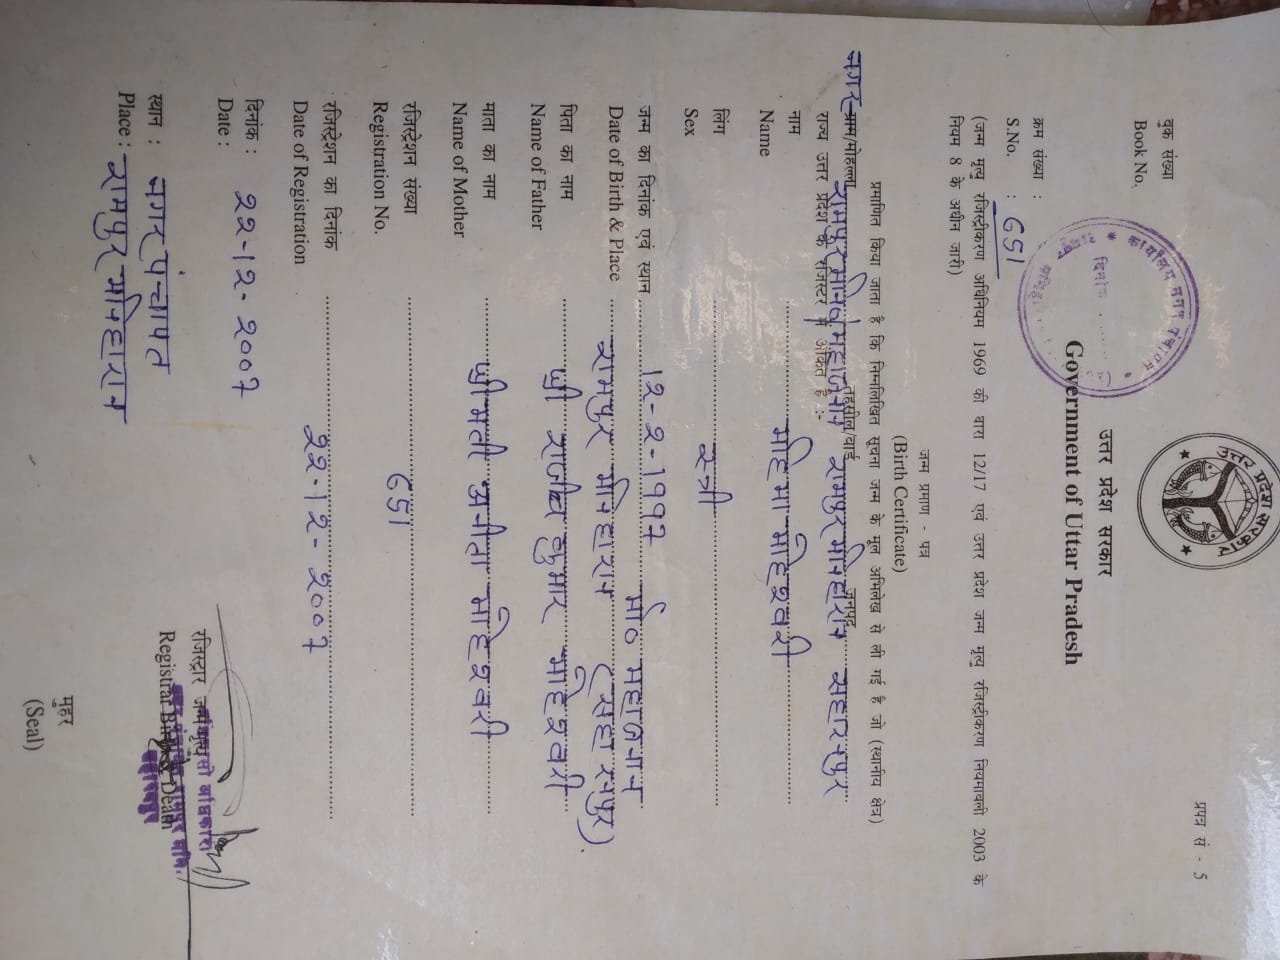 प्रपत्र सं - 5
उत्तर प्रदेश सरकार
बुक संख्या
Book No.
उत्तर प्रदेश सरकार
Government of Uttar Pradesh
कार्यालय नगर पंचायत
दिनांक
क्रम संख्या :
S.No. : 651
(जन्म मृत्यु रजिस्ट्रीकरण अधिनियम 1969 की धारा 12/17 एवं उत्तर प्रदेश जन्म मृत्यु रजिस्ट्रीकरण नियमावली 2003 के
नियम 8 के अधीन जारी)
जन्म प्रमाण - पत्र
(Birth Certificate)
प्रमाणित किया जाता है कि निम्नलिखित सूचना जन्म के मूल अभिलेख से ली गई है जो (स्थानीय क्षेत्र)
नगर ग्राम/मोहल्ला रामपुर मनि० महाजनान तहसील/वार्ड रामपुर मनिहारान जनपद सहारनपुर
राज्य उत्तर प्रदेश के रजिस्टर में अंकित है :-
नाम
Name महिमा माहेश्वरी
लिंग
Sex स्त्री
जन्म का दिनांक एवं स्थान 12-2-1997 मो० महाजनान
Date of Birth & Place रामपुर मनिहारान (सहारनपुर).
पिता का नाम
Name of Father श्री राजीव कुमार माहेश्वरी
माता का नाम
Name of Mother श्रीमती अनीता माहेश्वरी
रजिस्ट्रेशन संख्या
Registration No. 651
रजिस्ट्रेशन का दिनांक
Date of Registration 22-12-2007
दिनांक :
Date : 22-12-2007
स्थान : नगर पंचायत
Place : रामपुर मनिहारान
रजिस्ट्रार जन्म मृत्यु
Registrar Birth & Death
मुहर
(Seal)